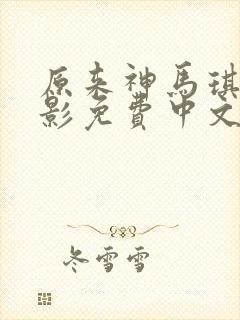 原来神馬琪
影免費中文
冬雪雪